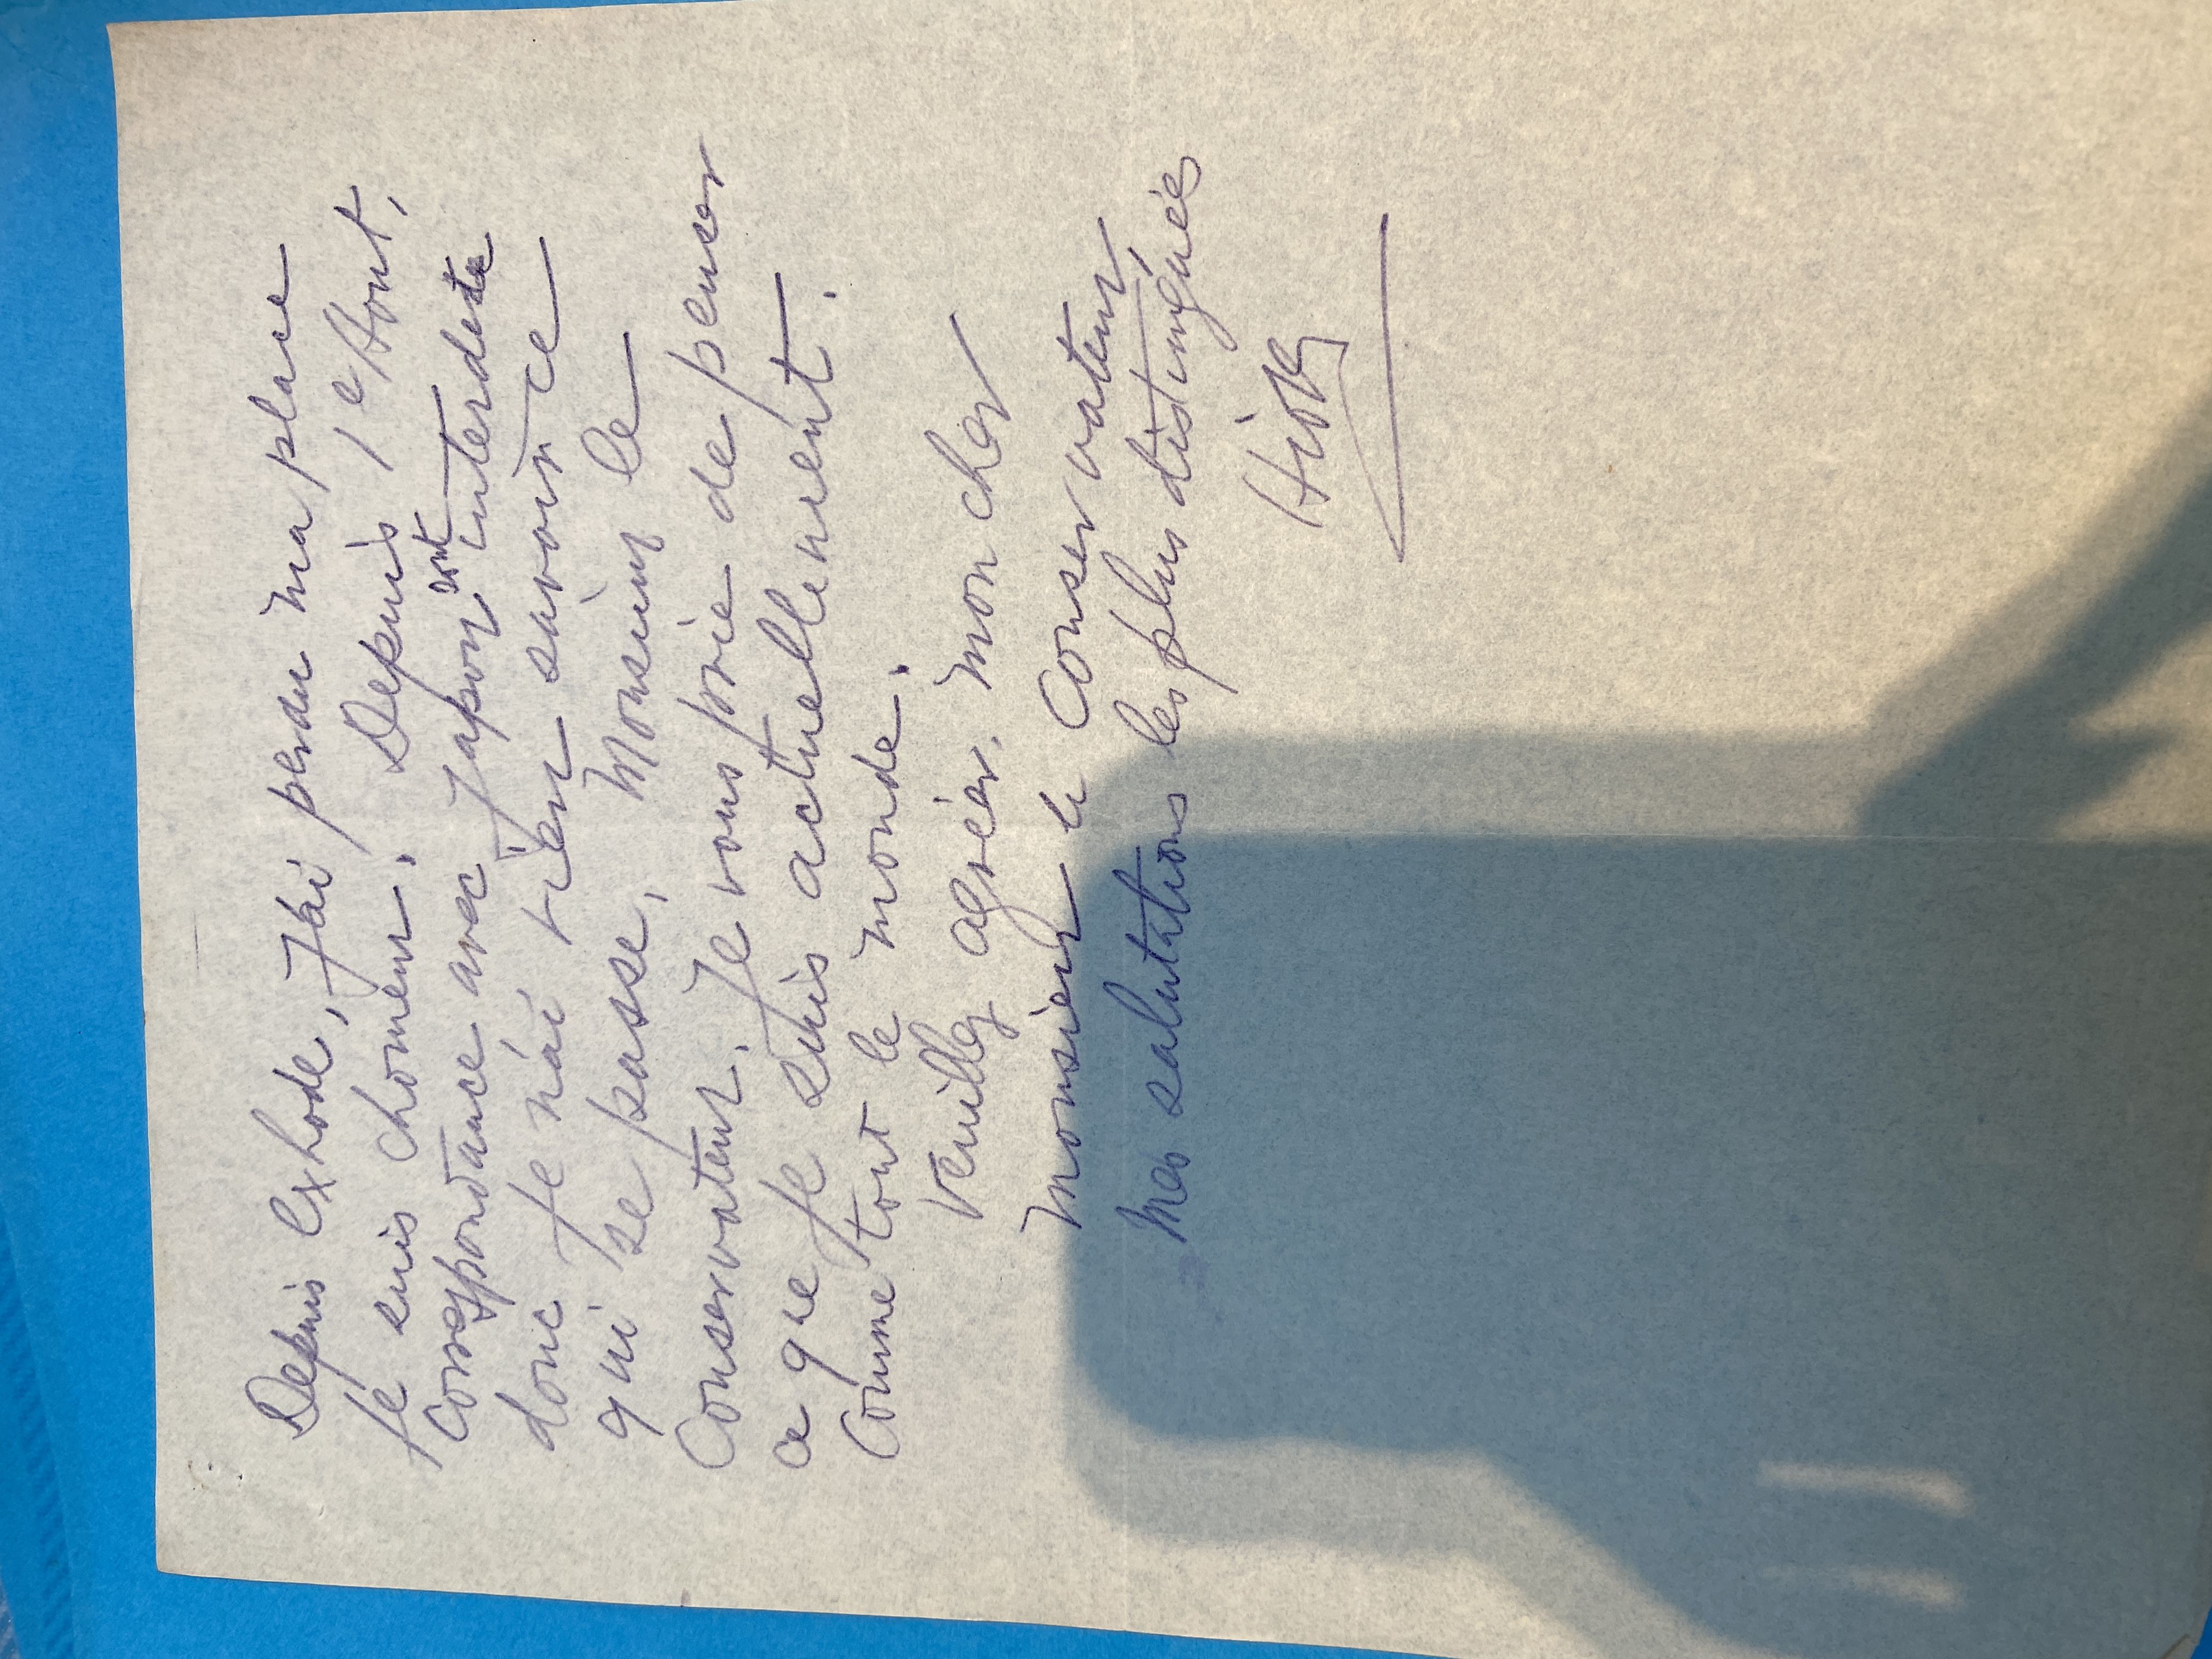 Depuis l'exhode, J'ai perdu ma place
je suis chomeur. Depuis 1e Aout,
correspondance avec Japon sont interdite
donc Je n'ai rien savoir ce
qui se passe, Monsieur le
Conservateur. Je vous prie de penser
a que Je suis actuellement.
Comme tout le monde.
Veuillez agréer, mon cher
Monsieur le Conservateur,
Mes salutations les plus distinguées